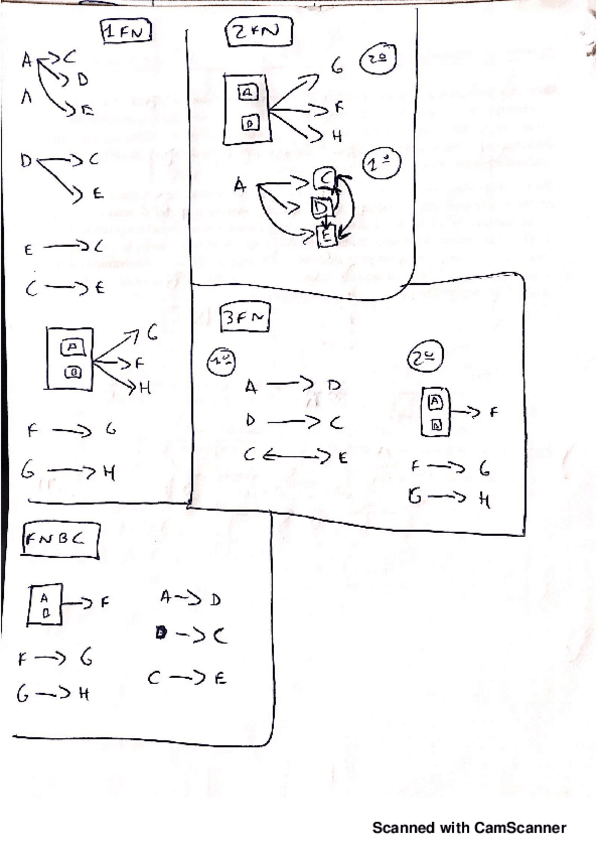 1FN
A → C
→ D
A → E
D → C
→ E
E → C
C → E
A
B
→ G
→ F
→ H
F → G
G → H
2FN
2º
A
B
→ G
→ F
→ H
1º
A → C
→ D
→ E
3FN
1º
A → D
D → C
C ↔ E
2º
A
B
→ F
F → G
G → H
FNBC
A
B
→ F
F → G
G → H
A → D
D → C
C → E
Scanned with CamScanner